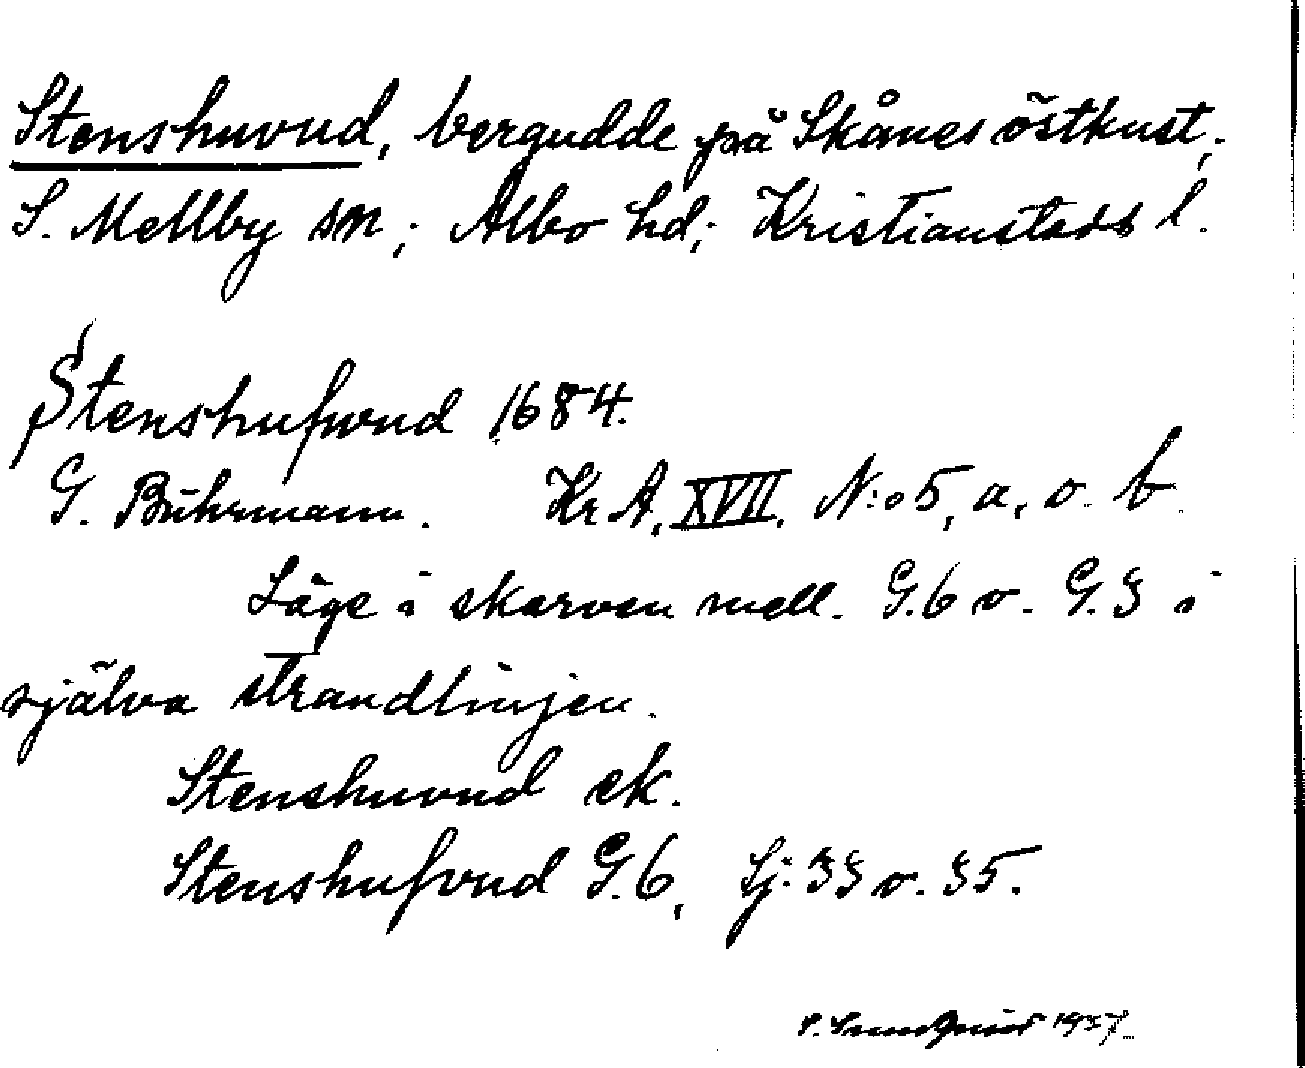 Stenshuvud, bergudde på Skånes östkust;
S. Mellby sn; Albo hd; Kristianstads l.
Stenshufvud 1684.
G. Buhrmann. Kr A. XVII. N:o 5, a, o. b.
Läge i skarven mell. G.6 o. G.3 i
själva strandlinjen.
Stenshuvud ek.
Stenshufvud G.6, Sj: 33 o. 35.
1937